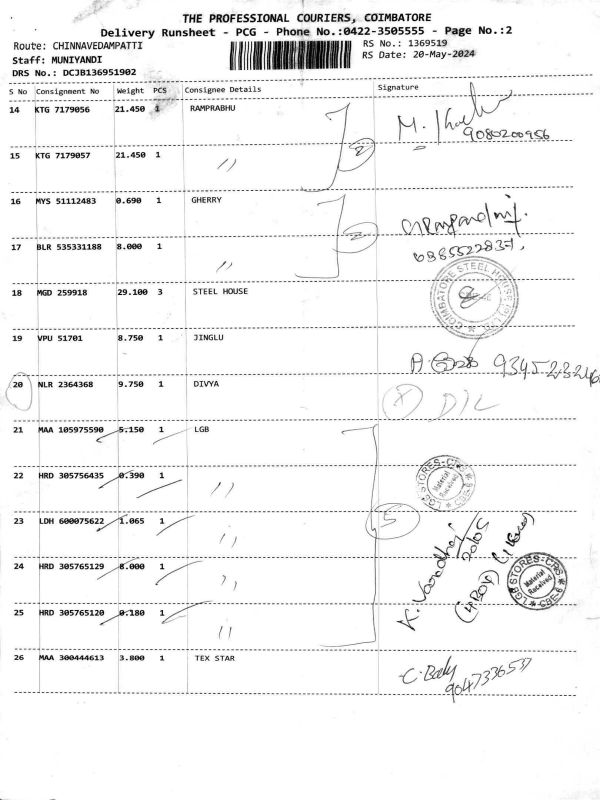 THE PROFESSIONAL COURIERS, COIMBATORE
Delivery Runsheet - PCG - Phone No.:0422-3505555 - Page No.:2
Route: CHINNAVEDAMPATTI
RS No.: 1369519
Staff: MUNIYANDI
RS Date: 20-May-2024
DRS No.: DCJB136951902
S No Consignment No Weight PCS Consignee Details Signature
14 KTG 7179056 21.450 1 RAMPRABHU
2
9080200956
15 KTG 7179057 21.450 1 "
16 MYS 51112483 0.690 1 GHERRY
2
17 BLR 535331188 8.000 1 "
18 MGD 259918 29.100 3 STEEL HOUSE
COIMBATORE STEEL HOUSE
19 VPU 51701 8.750 1 JINGLU
20 NLR 2364368 9.750 1 DIVYA
X D/L
21 MAA 105975590 5.150 1 LGB
22 HRD 305756435 0.390 1 "
LGB STORES-CRS
Material Received
23 LDH 600075622 1.065 1 "
5
24 HRD 305765129 8.000 1 "
LGB STORES-CRS
Material Received
CBE-6
25 HRD 305765120 0.180 1 "
26 MAA 300444613 3.800 1 TEX STAR
9047336537